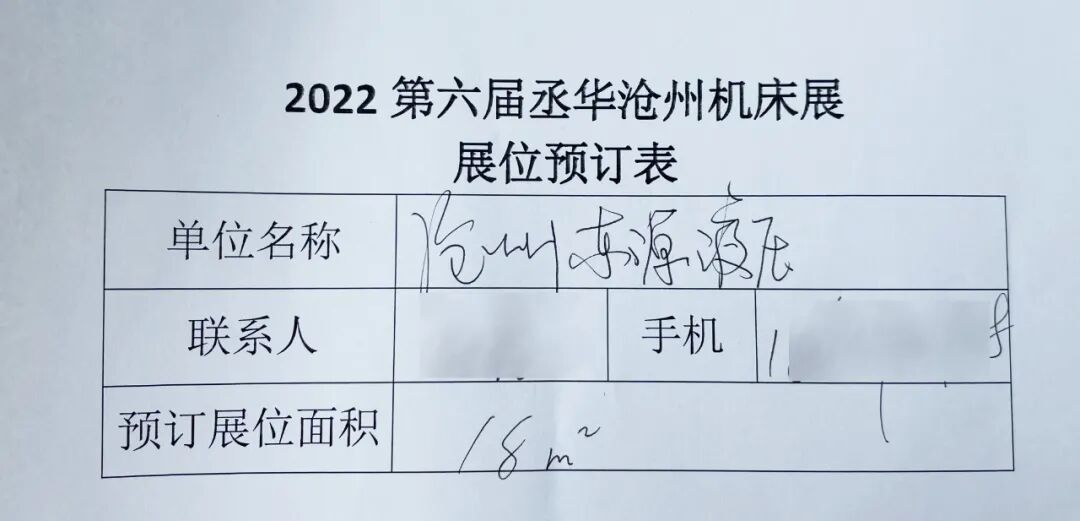 2022 第六届丞华沧州机床展
展位预订表
单位名称 沧州东源液压
联系人 手机 1
预订展位面积 18m²